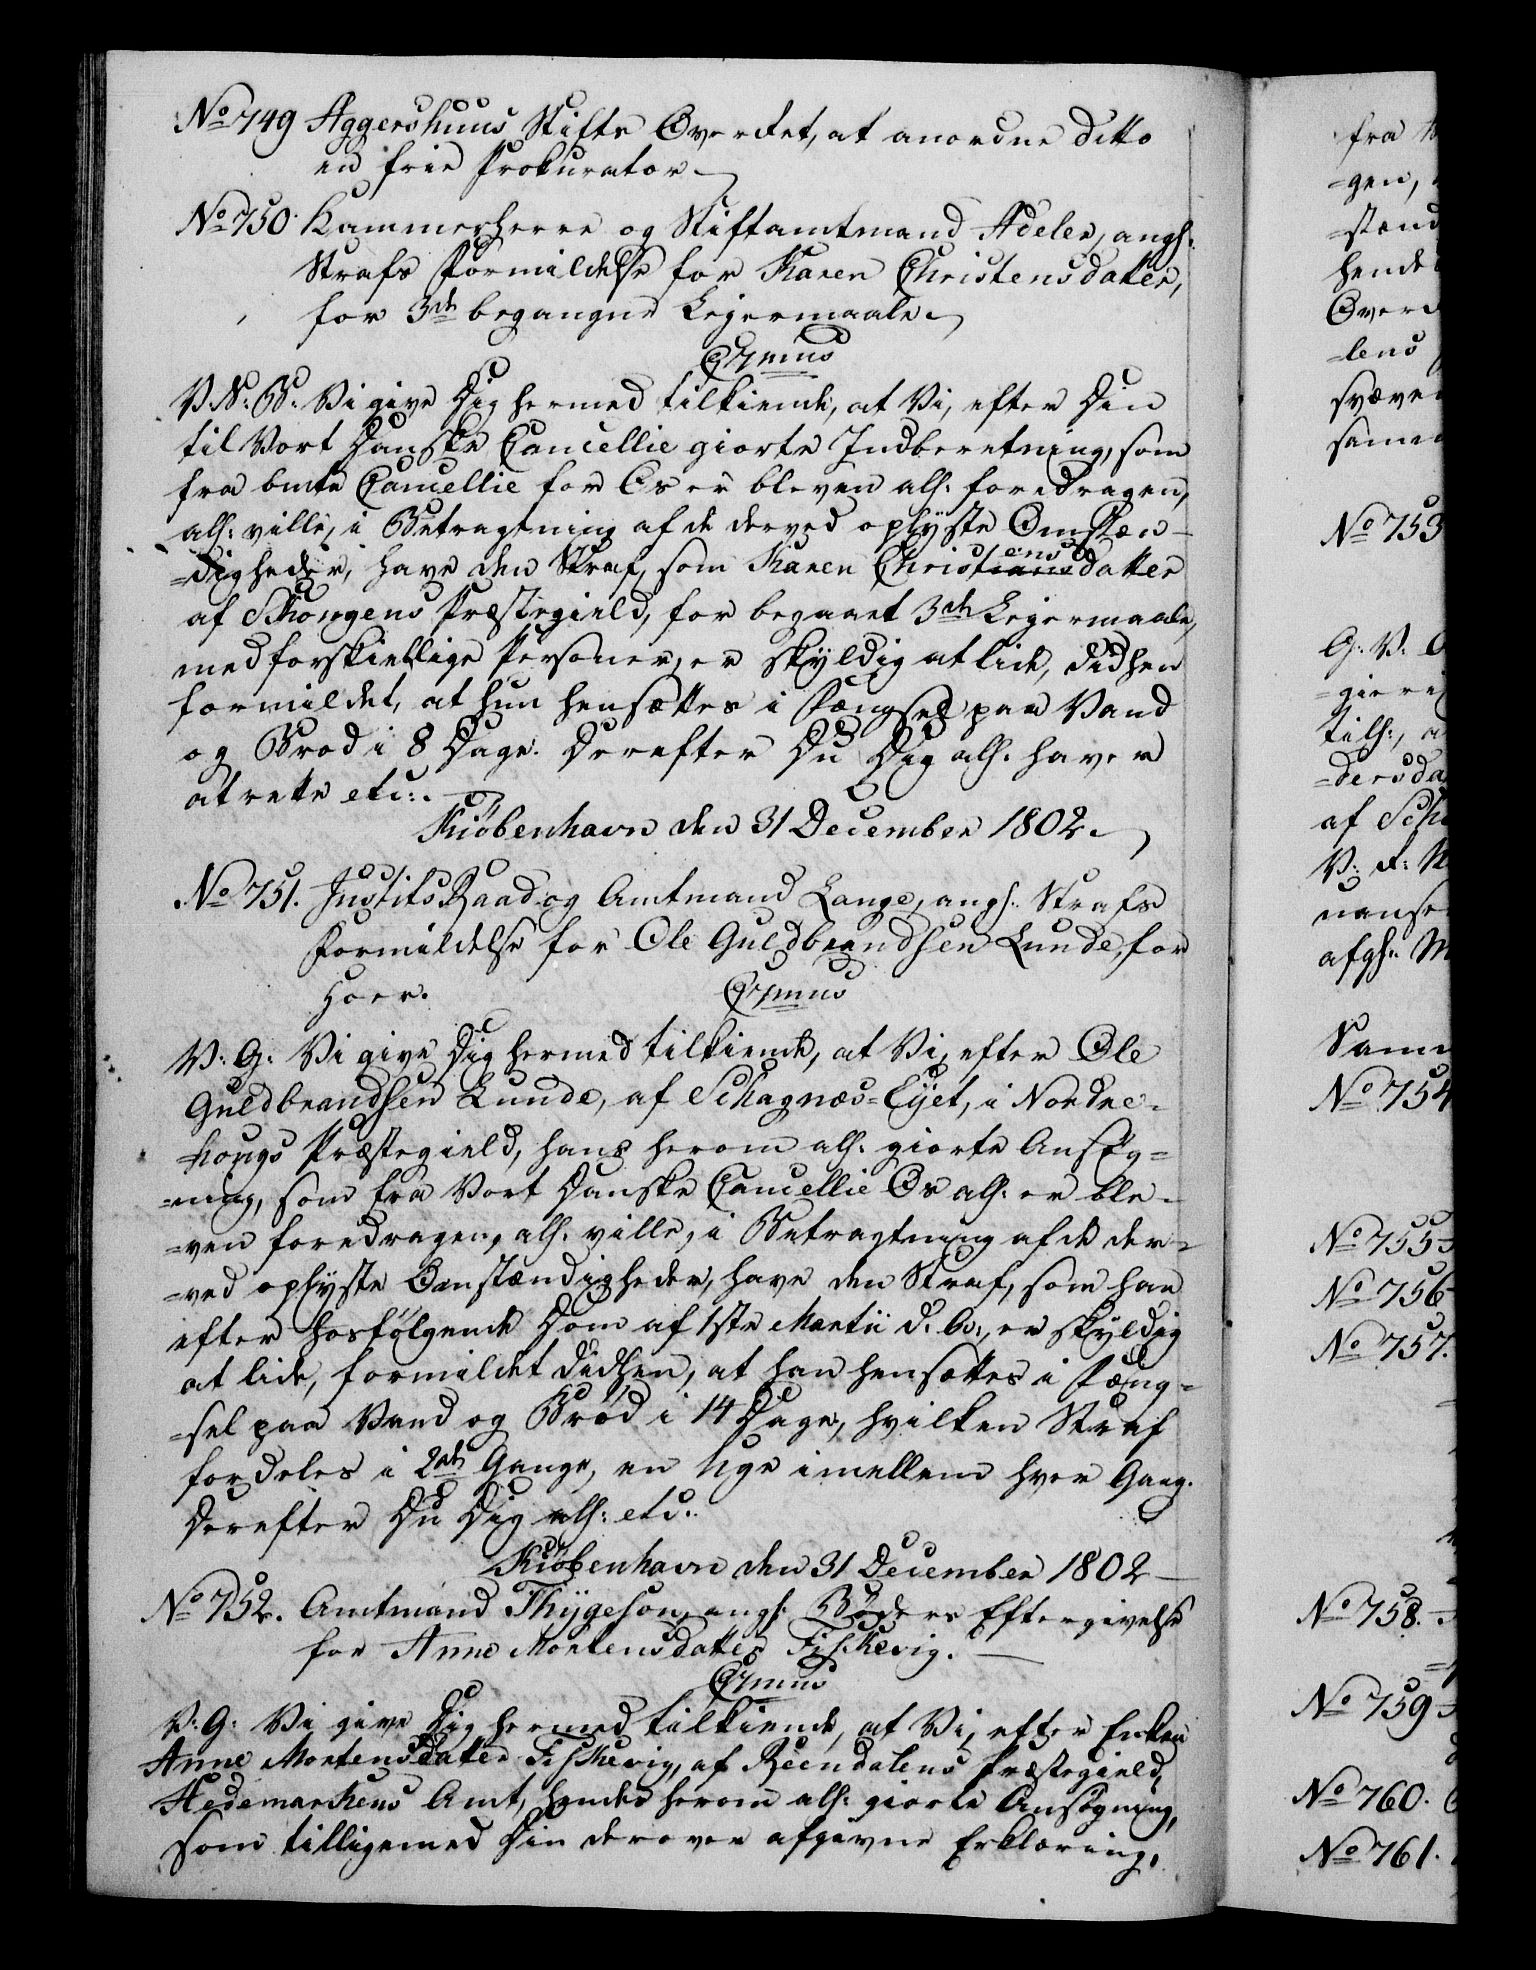 No 749 Aggershuus Stifts Overret, at anordne ditto
en frie Prokurator.
No 750. Kammerherre og Stiftamtmand Adeler, angl:
Strafs Formildelse for Karen Christensdatter,
for 3de begangne Lejermaale.
C7mus
V. S: B: Vi give Dig hermed tilkiende, at Vi, efter Din
til Vort Danske Cancellie giorte Indberetning, som
fra bmte Cancellie for Os er bleven all: foredragen,
all: ville, i Betragtning af de derved oplyste Omstæn-
=digheder, have den Straf, som Karen Christiansensdatter
af Schougens Præstegield, for begaaet 3de Lejermaale,
med forskiellige Personer, er skyldig at lide, didhen
formildet, at hun hensættes i Fængsel paa Vand
og Brød i 8 Dage. Derefter Du Dig all: haver
at rette etc:.
Kiöbenhavn den 31 December 1802.
No 751. JustitsRaad og Amtmand Lange, angl: Strafs
Formildelse for Ole Guldbrandsen Lunde, for
Hoer.
C7mus
V: G: Vi give Dig hermed tilkiende, at Vi, efter Ole
Guldbrandsen Lunde, af Schagnæs=Eyet, i Nordre-
=hougs Præstegield, hans herom all: giorte Ansög=
=ning, som fra Vort Danske Cancellie Os all: er ble-
=ven foredragen, all: ville, i Betragtning af de der=
=ved oplyste Omstændigheder, have den Straf, som han
efter hosfølgende Dom af 1ste Martii d: A:, er skyldig
at lide, formildet didhen, at han hensættes i Fæng=
=sel paa Vand og Brød i 14 Dage, hvilken Straf
fordeles i 2de Gange, en Uge imellem hver Gang.
Derefter Du Dig all: etc:
Kiöbenhavn den 31 December 1802
No 752. Amtmand Thygeson, angl: Bøders Eftergivelse
for Anne Mortensdatter Fiskevig.
C7mus
V: G: Vi give Dig hermed tilkiende, at Vi, efter Enken
Anne Mortensdatter Fiskevig, af Reendalens Præstegield,
Hedemarkens Amt, hendes herom all: giorte Ansøgning,
som tilligemed Din derover afgivne Erklæring,
fra
=gen,
=stænd
hende
Overe
=lens
svæve
samme
No 753
G: V:
=gierig
tilh:,
=dersda
af Sch
V: d: M
nanse
afgl: M
Samm
No 754
No 755
No 756
No 757.
No 758.
No 759
No 760.
No 761.